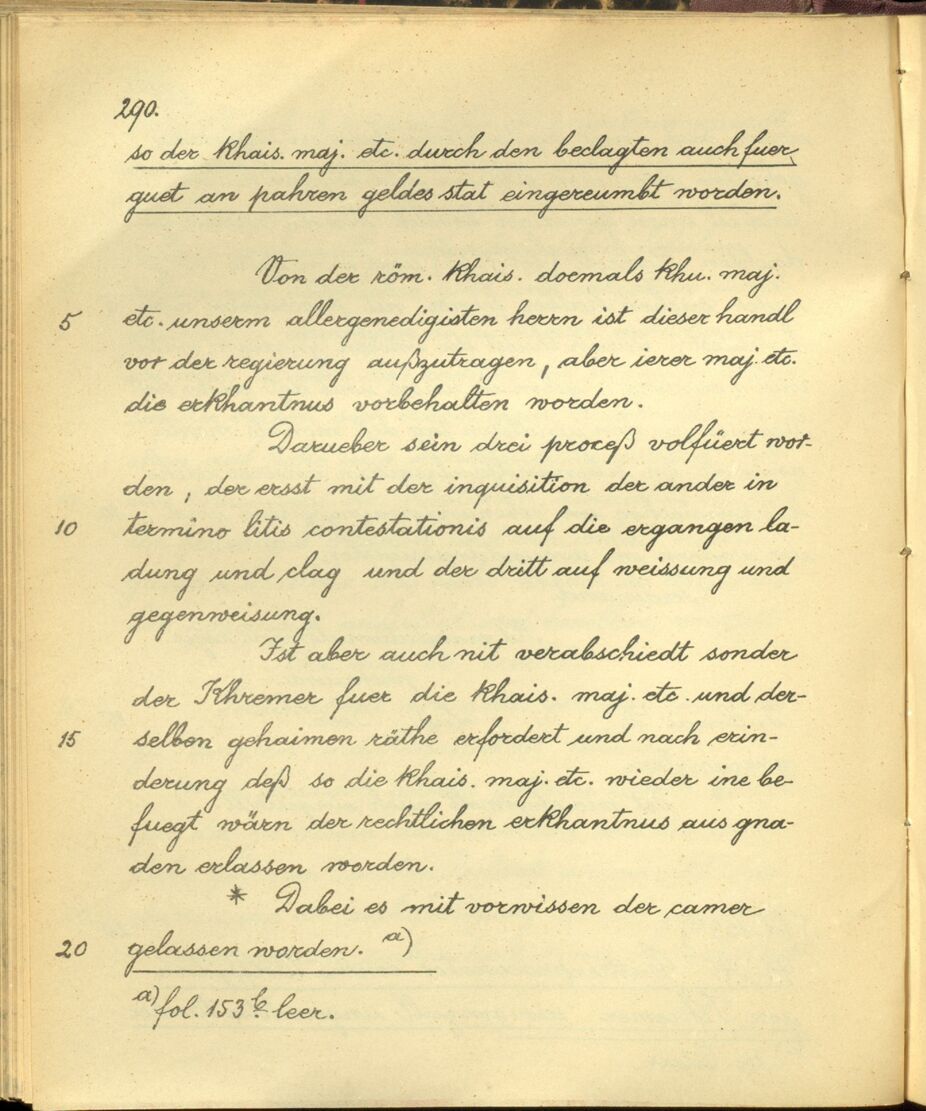 290.
so der khais. maj. etc. durch den beclagten auch fuer
guet an pahren geldes stat eingereumbt worden.
Von der röm. khais. doemals khu. maj.
5 etc. unserm allergenedigisten herrn ist dieser handl
vor der regierung außzutragen, aber ierer maj. etc.
die erkhantnus vorbehalten worden.
Darueber sein drei proceß volfüert wor-
den, der ersst mit der inquisition der ander in
10 termino litis contestationis auf die ergangen la-
dung und clag und der dritt auf weissung und
gegenweisung.
Ist aber auch nit verabschiedt sonder
der Khremer fuer die khais. maj. etc. und der-
15 selben gehaimen räthe erfordert und nach erin-
derung deß so die khais. maj. etc. wieder ine be-
fuegt wärn der rechtlichen erkhantnus aus gna-
den erlassen worden.
* Dabei es mit vorwissen der camer
20 gelassen worden. a)
a) fol. 153 b. leer.